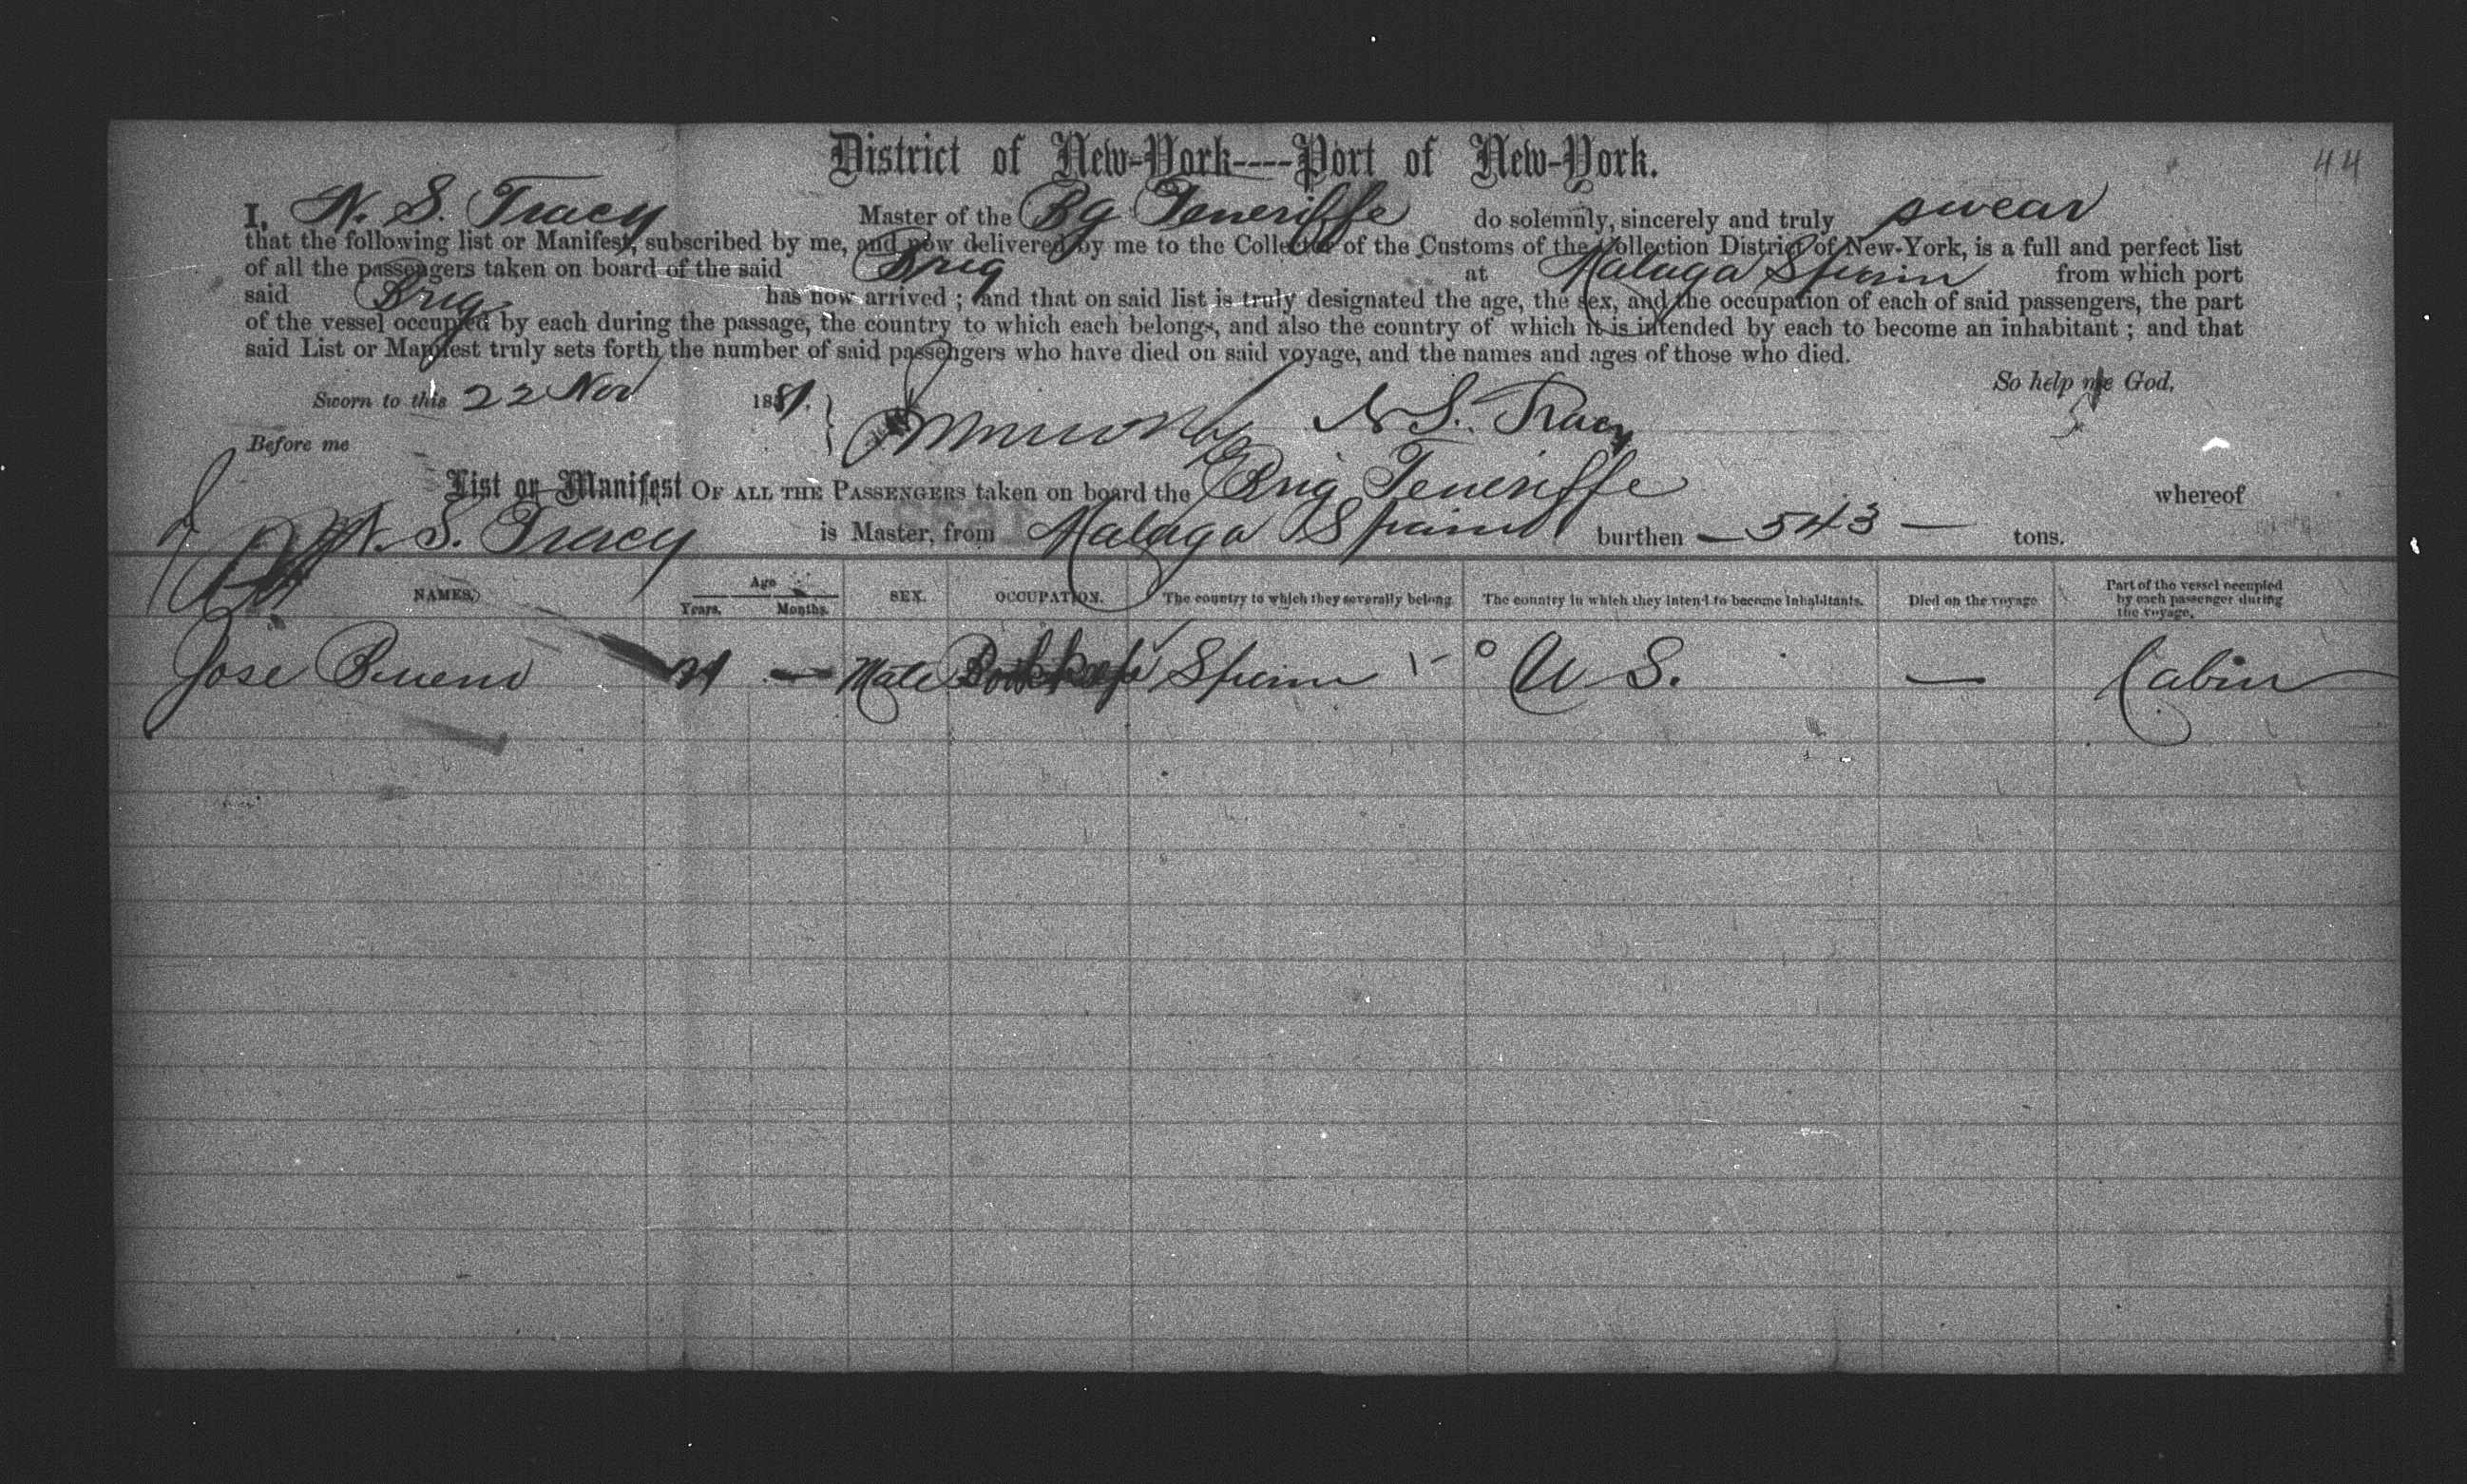 44
District of New-York----Port of New-York.
I, N. S. Tracy Master of the Bg Teneriffe do solemnly, sincerely and truly swear
that the following list or Manifest, subscribed by me, and now delivered by me to the Collector of the Customs of the Collection District of New-York, is a full and perfect list
of all the passengers taken on board of the said Brig at Malaga Spain from which port
said Brig has now arrived ; and that on said list is truly designated the age, the sex, and the occupation of each of said passengers, the part
of the vessel occupied by each during the passage, the country to which each belongs, and also the country of which it is intended by each to become an inhabitant ; and that
said List or Manifest truly sets forth the number of said passengers who have died on said voyage, and the names and ages of those who died.
So help me God,
Sworn to this 22 Nov 1881.
Before me
N S. Tracy
List or Manifest OF ALL THE PASSENGERS taken on board the Brig Teneriffe whereof
N. S. Tracy is Master, from Malaga Spain burthen — 543 — tons.
NAMES. Age Years. Months. SEX. OCCUPATION. The country to which they severally belong The country in which they intend to become inhabitants. Died on the voyage Part of the vessel occupied by each passenger during the voyage.
Jose Bueno — Male Spain U S. — Cabin